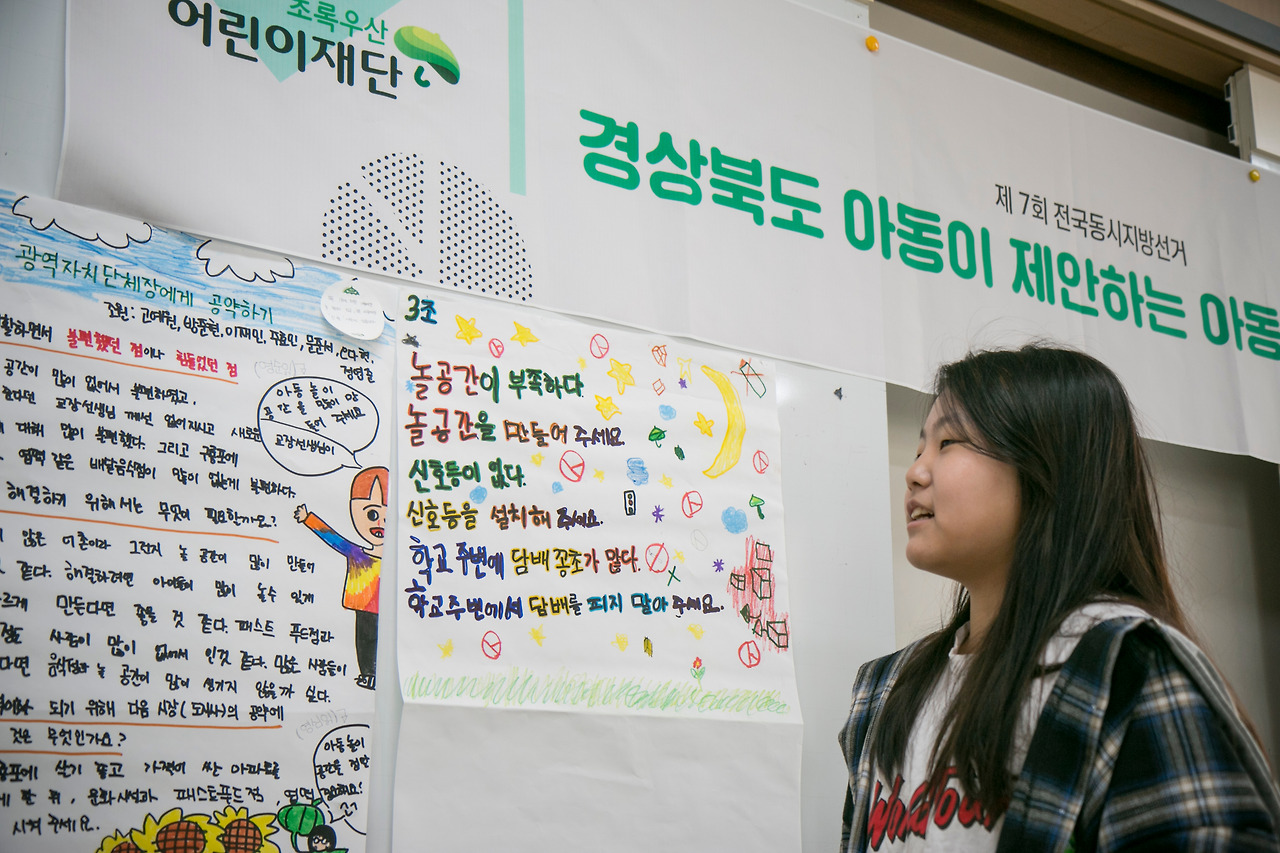 초록우산
어린이재단
제 7회 전국동시지방선거
경상북도 아동이 제안하는 아동
광역자치단체장에게 공약하기
조원 : 고예원, 방준현, 이재민, 주효민, 문준서,
불편했던 점이나 힘들었던 점
공간이 많이 없어서 불편하였고,
교장선생님 께선 없어지시고 새로운
대해 많이 불편했다. 그리고 구룡포에
같은 배달음식점이 많이 없는게 불편하다.
해결하게 위해서는 무엇이 필요한가요?
않은 어촌이라 그런지 놀 공간이 많이 만들어
같다. 해결하려면 아이들이 많이 놀수 있게
만든다면 좋을 것 같다. 패스트 푸드점과
사람이 많이 없어서 인것 같다. 많은 사람들이
음식점과 놀 공간이 많이 생기지 않을까 싶다.
되기 위해 다음 시장(도지사)의 공약에
것은 무엇인가요?
살기 좋고 가격이 싼 아파트를
문화시설과 패스트푸드점,
시켜 주세요.
아동 놀이
공간을 많이 만
들어 주세요
교장선생님이
아동놀이
공간을 점만
3조
놀공간이 부족하다.
놀공간을 만들어 주세요.
신호등이 없다.
신호등을 설치해 주세요.
학교 주변에 담배 꽁초가 많다.
학교주변에서 담배를 피지 말아 주세요.